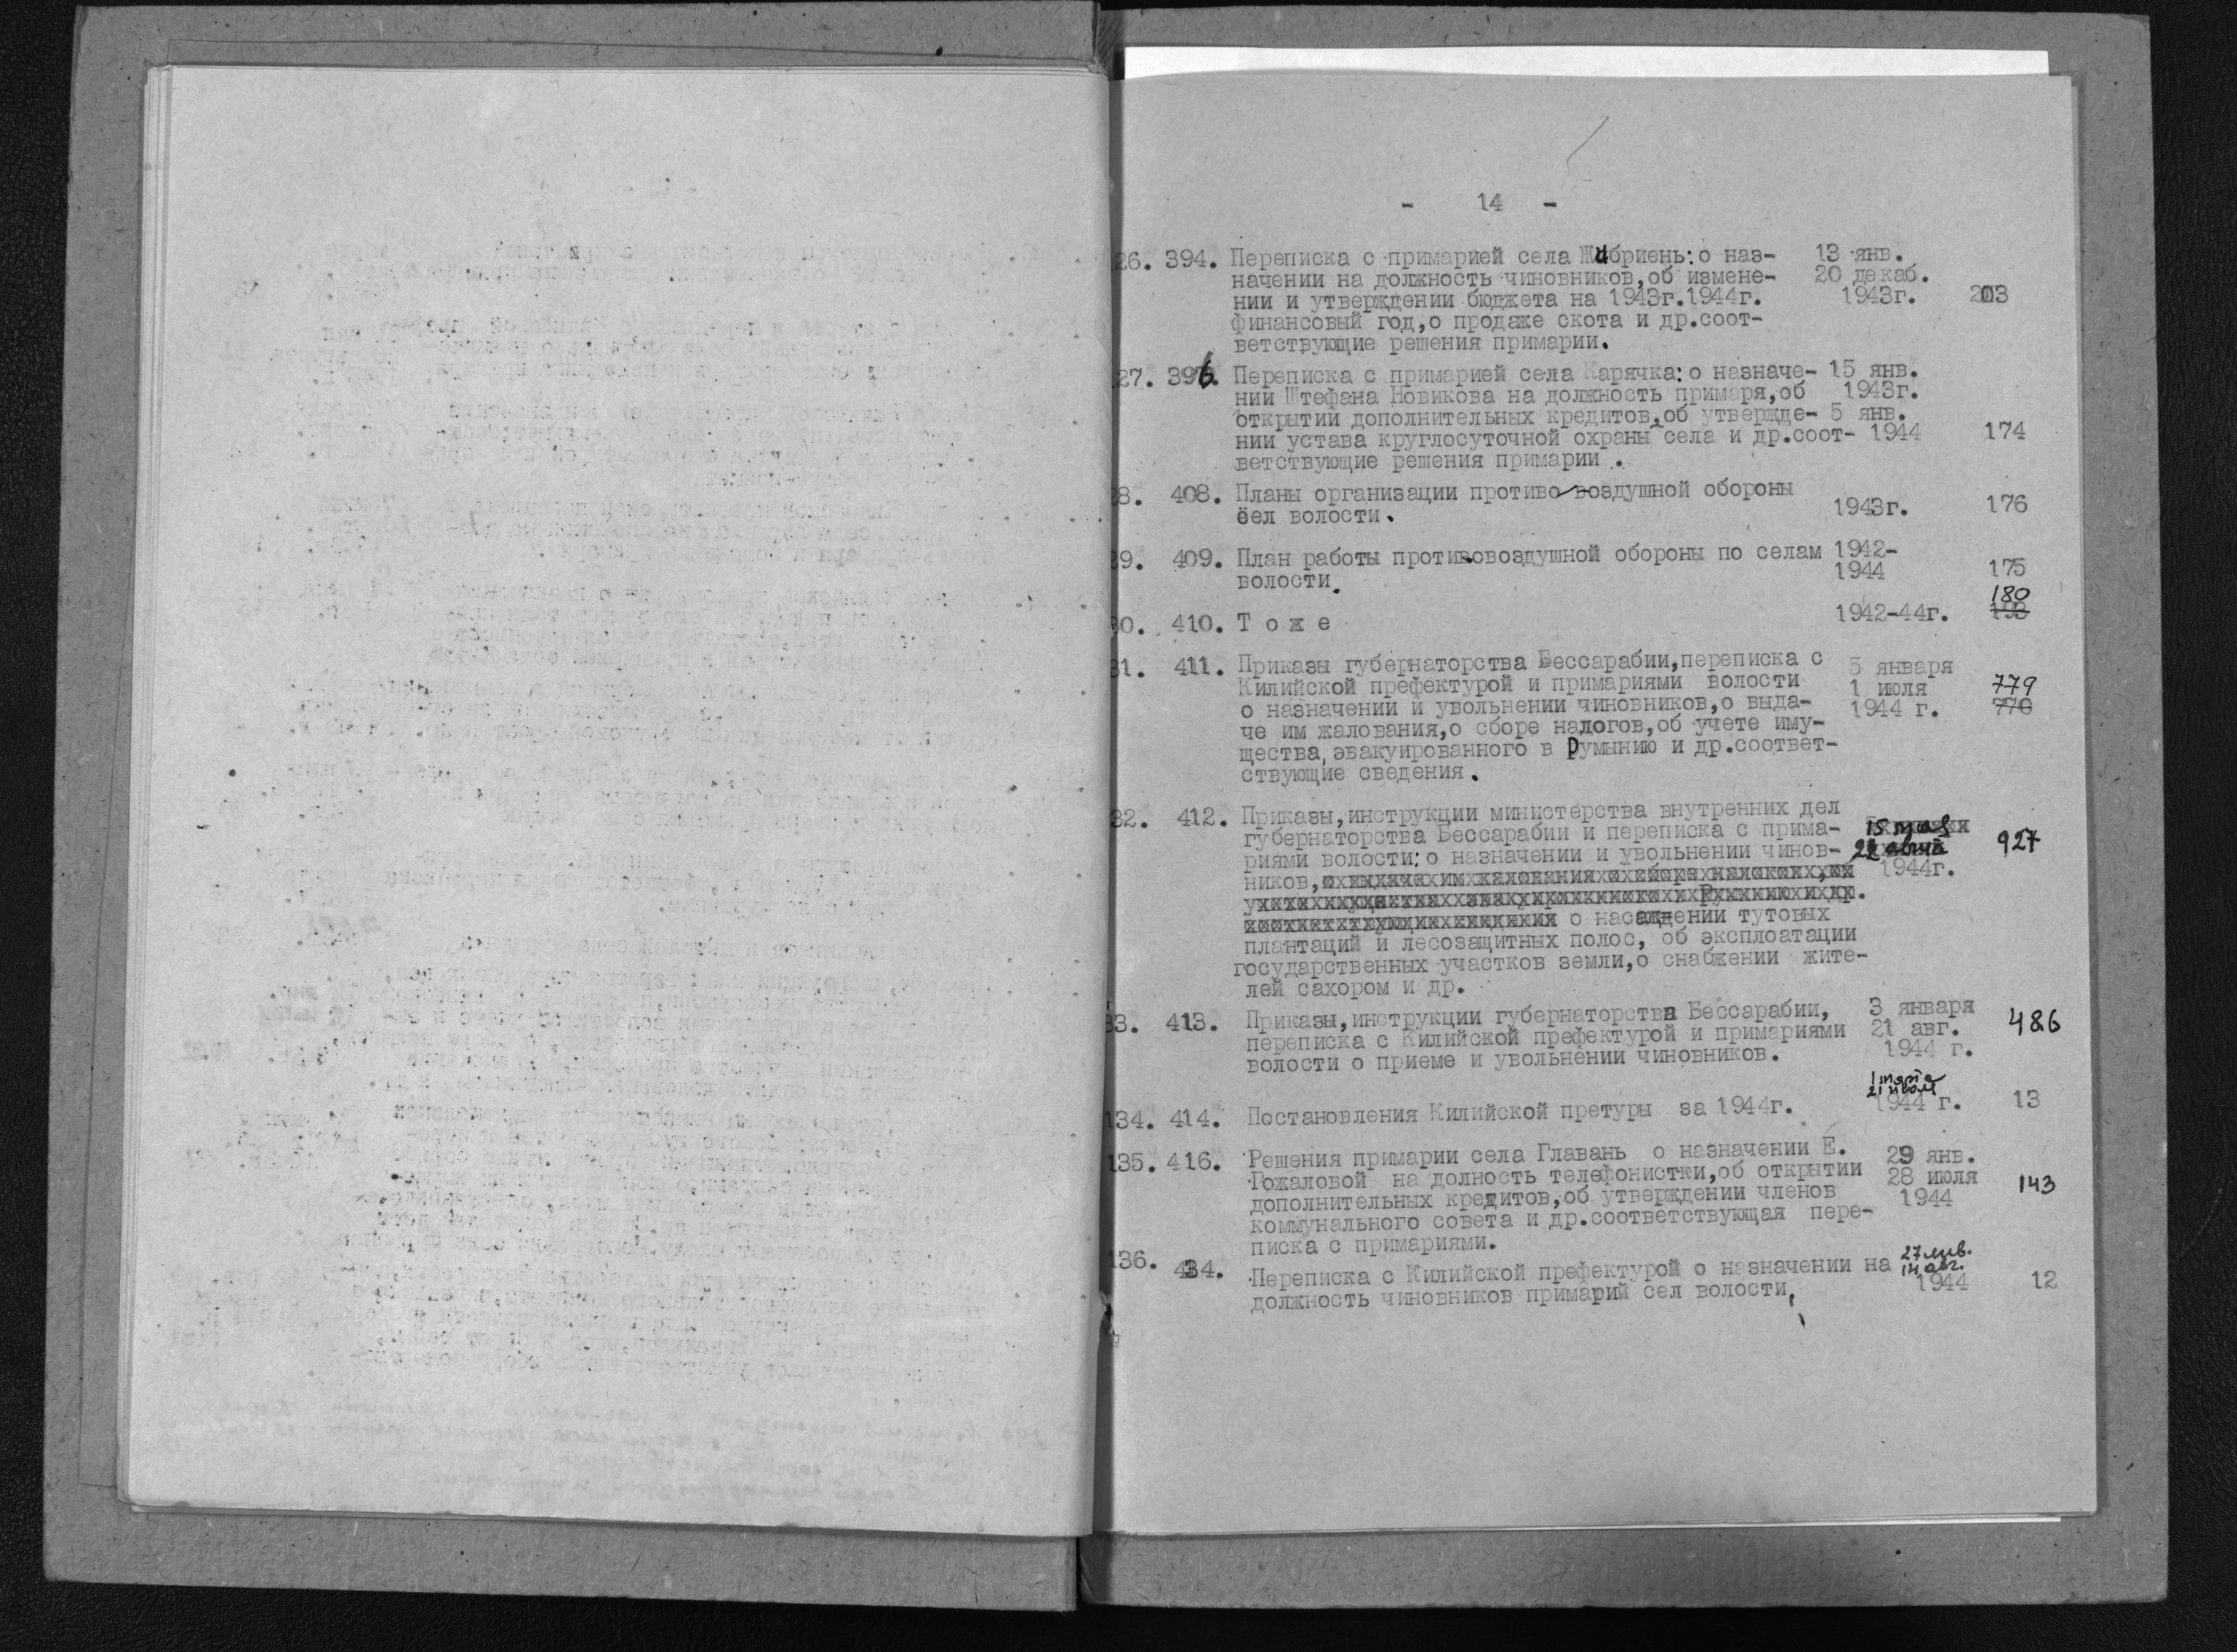 - 14 -
26. 394. Переписка с примарией села Жибриень: о наз- 13 янв.
начении на должность чиновников, об измене- 20 декаб.
нии и утверждении бюджета на 1943г.1944г. 1943г. 203
финансовый год, о продаже скота и др.соот-
ветствующие решения примарии.
27. 396. Переписка с примарией села Карячка: о назначе- 15 янв.
нии Штефана Новикова на должность примаря, об 1943г.
открытии дополнительных кредитов, об утвержде- 5 янв.
нии устава круглосуточной охраны села и др.соот- 1944 174
ветствующие решения примарии .
8. 408. Планы организации противо воздушной обороны
сел волости. 1943г. 176
9. 409. План работы противовоздушной обороны по селам 1942-
волости. 1944 175
180
0. 410. Т о ж е 1942-44г.
31. 411. Приказы губернаторства Бессарабии, переписка с 5 января
Килийской префектурой и примариями волости 1 июля 779
о назначении и увольнении чиновников, о выда- 1944 г. 770
че им жалования, о сборе налогов, об учете иму-
щества, эвакуированного в Румынию и др.соответ-
ствующие сведения.
32. 412. Приказы, инструкции министерства внутренних дел
губернаторства Бессарабии и переписка с прима- 15 мая
риями волости: о назначении и увольнении чинов- 22 927
ников, 1944г.
о насаждении тутовых
плантаций и лесозащитных полос, об эксплоатации
государственных участков земли, о снабжении жите-
лей сахором и др.
3. 413. Приказы, инструкции губернаторства Бессарабии, 3 января
переписка с Килийской префектурой и примариями 21 авг. 486
волости о приеме и увольнении чиновников. 1944 г.
1 марта
21
134. 414. Постановления Килийской претуры за 1944г. 1944 г. 13
135. 416. Решения примарии села Главань о назначении Е. 29 янв.
Гожаловой на долность телефонистки, об открытии 28 июля
дополнительных кредитов, об утверждении членов 1944 143
коммунального совета и др.соответствующая пере-
писка с примариями.
136. 434. Переписка с Килийской префектурой о назначении на 27 янв. 14 авг.
должность чиновников примарий сел волости, 1944 12